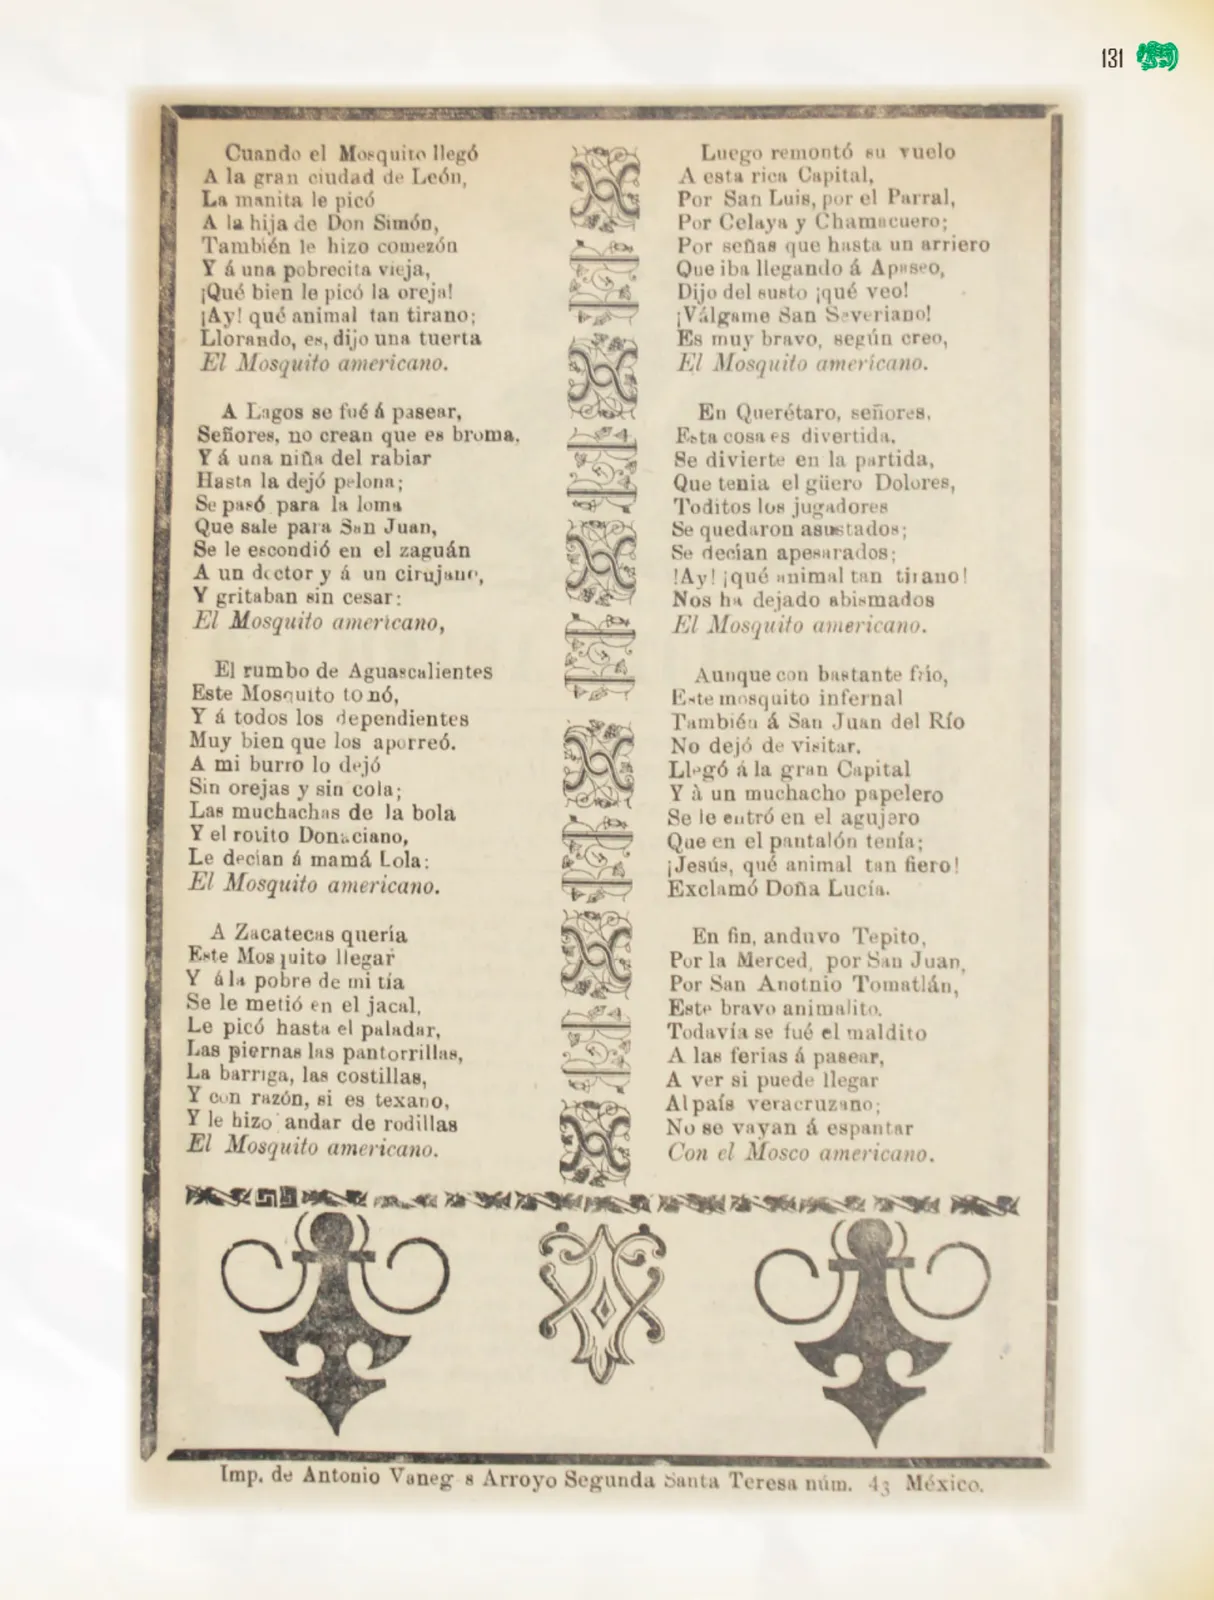 131
Cuando el Mosquito llegó
A la gran ciudad de León,
La manita le picó
A la hija de Don Simón,
También le hizo comezón
Y á una pobrecita vieja,
¡Qué bien le picó la oreja!
¡Ay! qué animal tan tirano;
Llorando, es, dijo una tuerta
El Mosquito americano.
A Lagos se fué á pasear,
Señores, no crean que es broma,
Y á una niña del rabiar
Hasta la dejó pelona;
Se pasó para la loma
Que sale para San Juan,
Se le escondió en el zaguán
A un doctor y á un cirujano,
Y gritaban sin cesar:
El Mosquito americano,
El rumbo de Aguascalientes
Este Mosquito tonó,
Y á todos los dependientes
Muy bien que los aporreó.
A mi burro lo dejó
Sin orejas y sin cola;
Las muchachas de la bola
Y el rotito Donaciano,
Le decían á mamá Lola:
El Mosquito americano.
A Zacatecas quería
Este Mosquito llegar
Y á la pobre de mi tía
Se le metió en el jacal,
Le picó hasta el paladar,
Las piernas las pantorrillas,
La barriga, las costillas,
Y con razón, si es texano,
Y le hizo andar de rodillas
El Mosquito americano.
Luego remontó su vuelo
A esta rica Capital,
Por San Luis, por el Parral,
Por Celaya y Chamacuero;
Por señas que hasta un arriero
Que iba llegando á Apaseo,
Dijo del susto ¡qué veo!
¡Válgame San Severiano!
Es muy bravo, según creo,
El Mosquito americano.
En Querétaro, señores,
Esta cosa es divertida,
Se divierte en la partida,
Que tenia el güero Dolores,
Toditos los jugadores
Se quedaron asustados;
Se decian apesarados;
!Ay! ¡qué animal tan tirano!
Nos ha dejado abismados
El Mosquito americano.
Aunque con bastante frío,
Este mosquito infernal
También á San Juan del Río
No dejó de visitar.
Llegó á la gran Capital
Y à un muchacho papelero
Se le entró en el agujero
Que en el pantalón tenía;
¡Jesús, qué animal tan fiero!
Exclamó Doña Lucía.
En fin, anduvo Tepito,
Por la Merced, por San Juan,
Por San Anotnio Tomatlán,
Este bravo animalito.
Todavía se fué el maldito
A las ferias á pasear,
A ver si puede llegar
Al país veracruzano;
No se vayan á espantar
Con el Mosco americano.
Imp. de Antonio Vaneg s Arroyo Segunda Santa Teresa núm. 43 México.